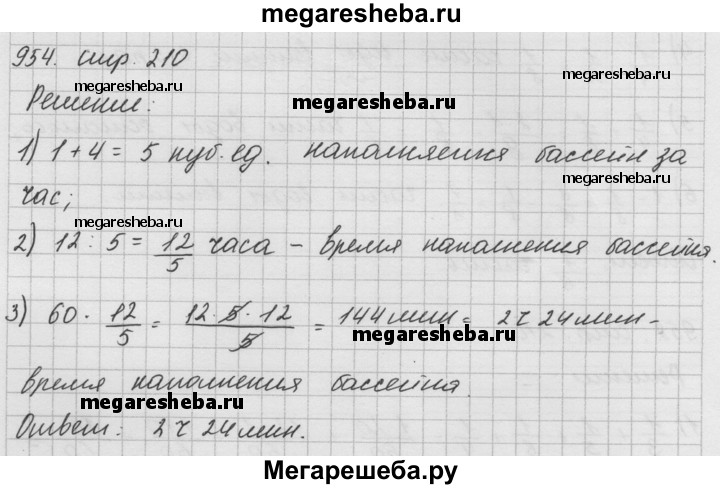 megaresheba.ru
954. стр. 210
megaresheba.ru
megaresheba.ru
Решение:
megaresheba.ru
1) 1 + 4 = 5 куб. ед. наполняется бассейн за
megaresheba.ru
час;
megaresheba.ru
2) 12 : 5 = 12/5 часа – время наполнения бассейна.
3) 60 · 12/5 = 12 · 5 · 12/5 = 144 мин = 2 ч 24 мин –
megaresheba.ru
время наполнения бассейна.
megaresheba.ru
Ответ: 2 ч 24 мин.
Мегарешеба.ру